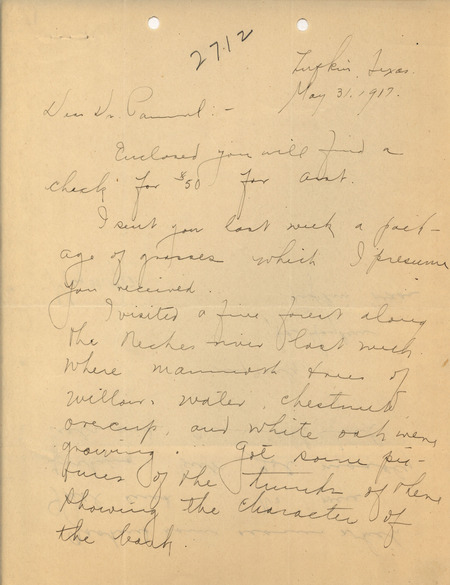 2712
Lufkin, Texas.
May 31, 1917.
Dear Dr. Pammel:-
Enclosed you will find a
check for $50 for acct.
I sent you last week a pack-
age of grasses which I presume
you received.
I visited a fine forest along
the Neches river last week
where mammoth trees of
willow, water, chestnut
overcup, and white oak were
growing. Got some pic-
tures of the trunks of these
showing the character of
the bark.